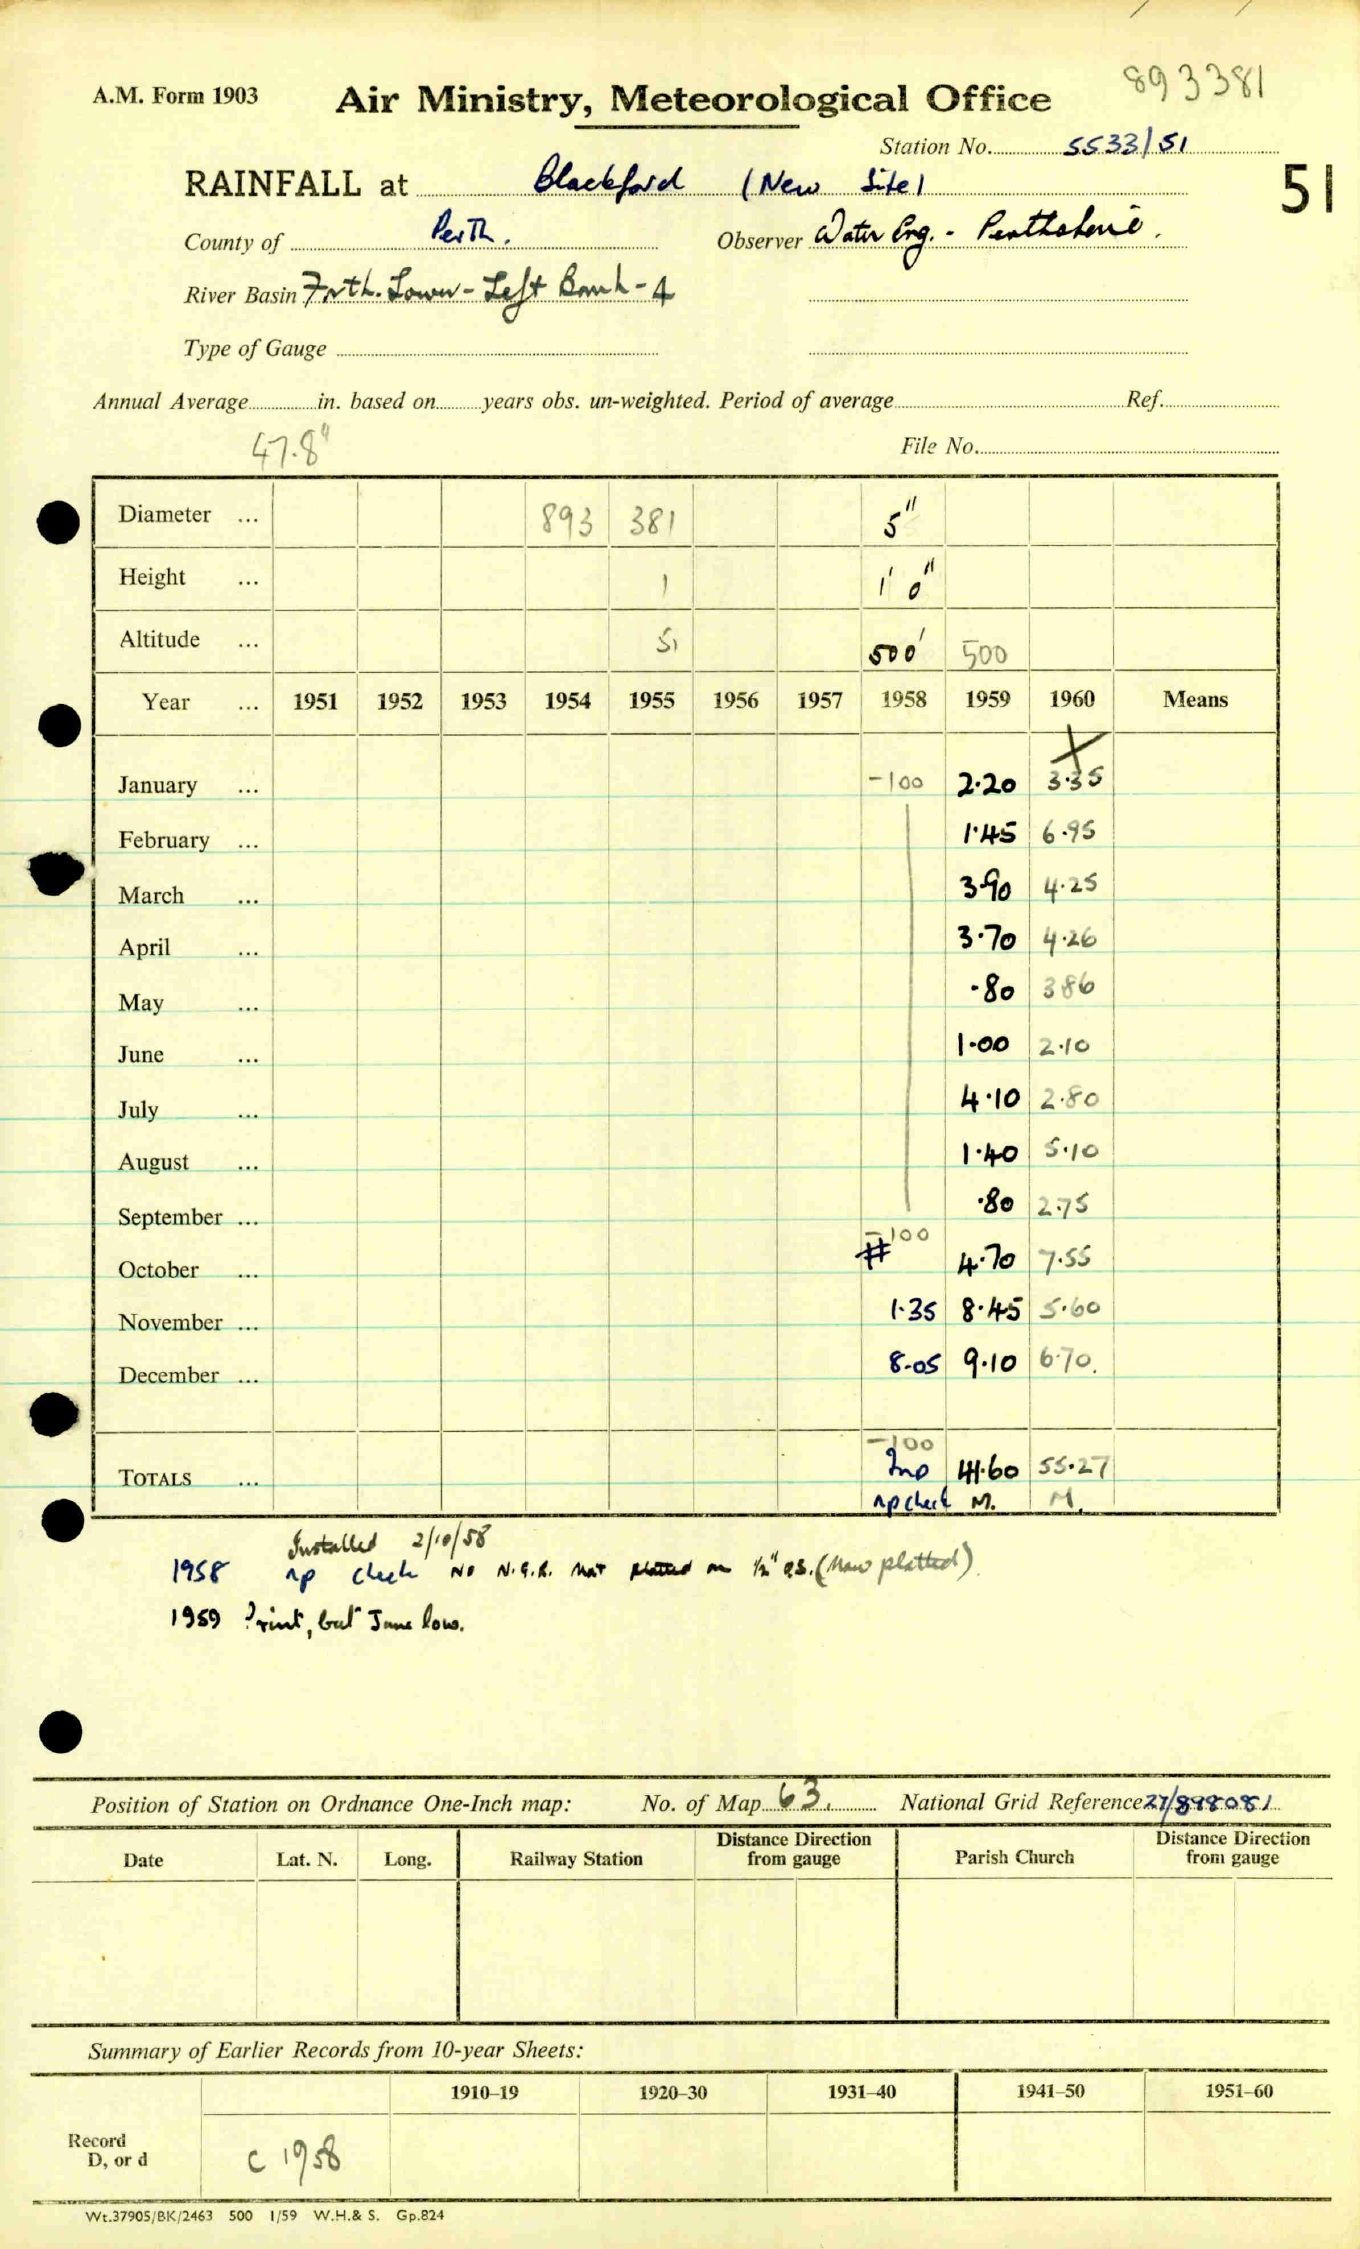 893381
A.M. Form 1903 Air Ministry, Meteorological Office
Station No. 5533/51
51
RAINFALL at Blackford (New Site)
County of Perth. Observer Water Eng. - Perthshire.
River Basin Forth. Lower - Left Bank - 4
Type of Gauge
Annual Average in. based on years obs. un-weighted. Period of average Ref.
47.8" File No.
Diameter ... 893 381 5"
Height ... 1 1' 0"
Altitude ... 51 500' 500
Year ... 1951 1952 1953 1954 1955 1956 1957 1958 1959 1960 Means
X
January ... -100 2.20 3.35
February ... 1.45 6.95
March ... 3.90 4.25
April ... 3.70 4.26
May ... .80 386
June ... 1.00 2.10
July ... 4.10 2.80
August ... 1.40 5.10
September ... .80 2.75
-100
October ... # 4.70 7.55
November ... 1.35 8.45 5.60
December ... 8.05 9.10 6.70.
-100
TOTALS ... Inp 41.60 55.27
np check M. M.
Installed 2/10/58
1958 np check No N.G.R. Not plotted on ½" O.S. (Now plotted)
1959 Print, but June low.
Position of Station on Ordnance One-Inch map: No. of Map 63. National Grid Reference 27/898081
Date Lat. N. Long. Railway Station Distance Direction from gauge Parish Church Distance Direction from gauge
Summary of Earlier Records from 10-year Sheets:
1910–19 1920–30 1931–40 1941–50 1951–60
Record
D, or d C 1958
Wt.37905/BK/2463 500 1/59 W.H.& S. Gp.824